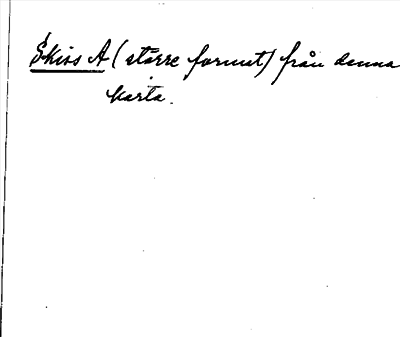 Skiss A (större format) från denna
karta.